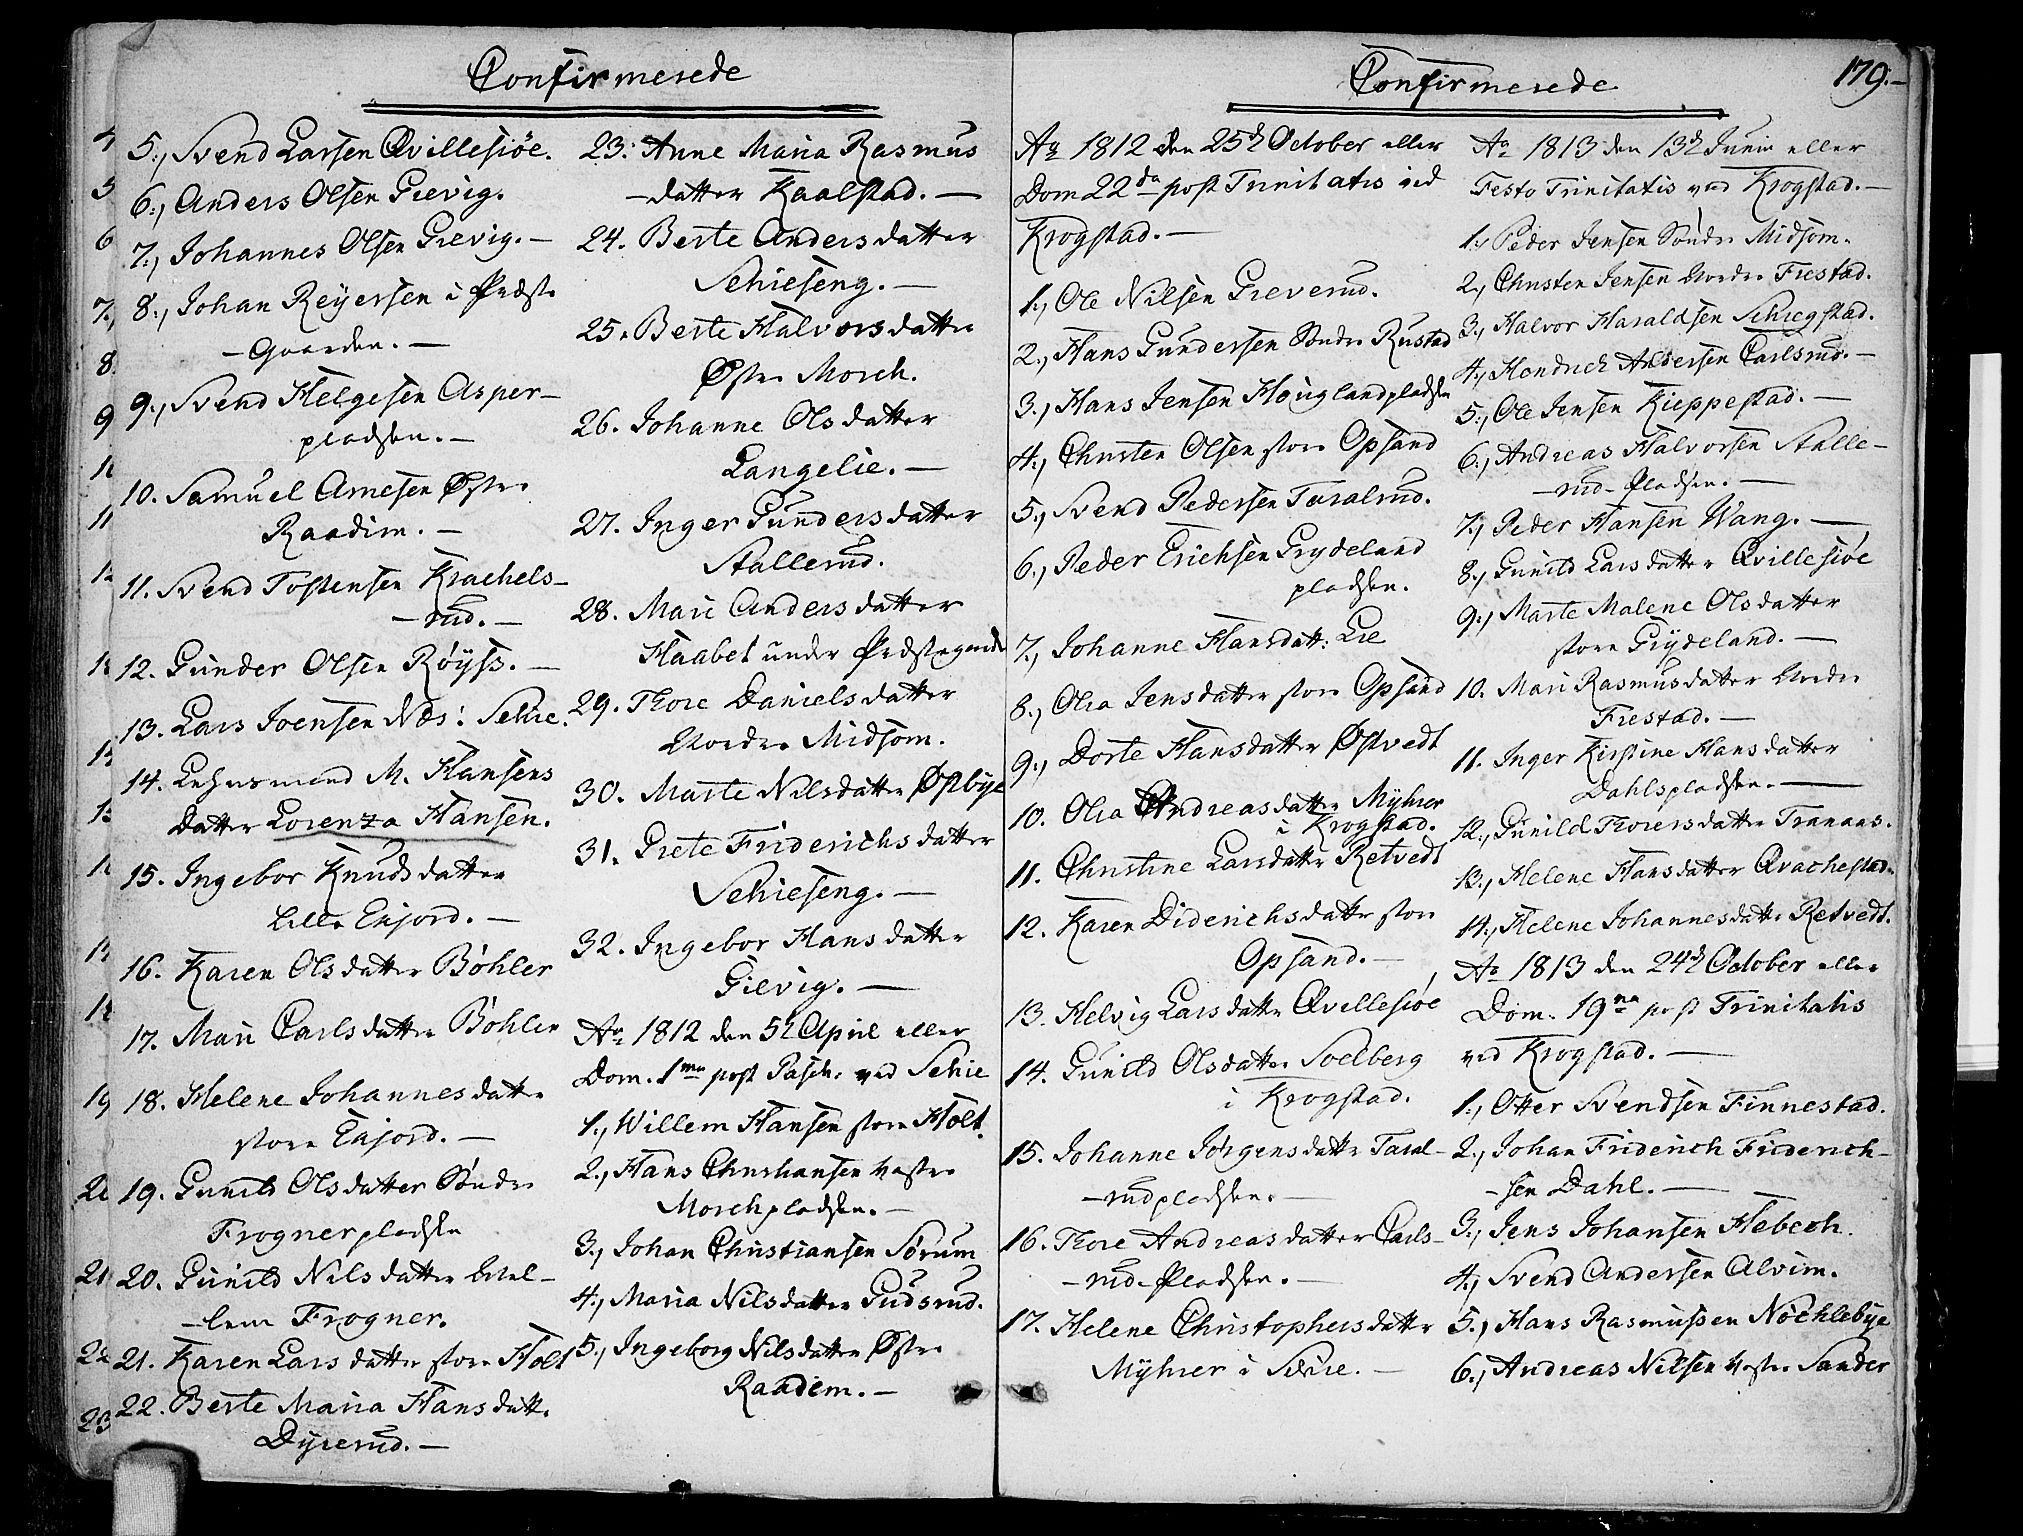 Confirmerede
5., Svend Larsen Qvillesiöe.
6., Anders Olsen Grevig.
7., Johannes Olsen Grevig. —
8., Johan Reÿersen i Præste
- Gaarden. —
9., Svend Helgesen Asper-
pladsen. —
10. Samuel Arnesen Østre
Raadim. —
11. Svend Tostensen Krachels-
- rud. —
12. Gunder Olsen Röÿss. —
13. Lars Joensen Næs i Schie.
14. Lehnsmand M. Hansens
datter Lorenza Hansen.
15. Ingebor Knudsdatter
Lille Enjord. —
16. Karen Olsdatter Böhler
17. Mari Carlsdatter Böhler
18. Helene Johannesdatter
store Enjord. —
19. Gunild Olsdatter Søndre
Frognerpladsen
20. Gunild Nilsdatter Mel-
-lem Frogner.
21. Karen Larsdatter store Holt
22. Berte Maria Hansdatt.
Dÿrerud. —
23. Anne Maria Rasmus
-datter Kaalstad. —
24. Berte Andersdatter
Schieseng. —
25. Berte Halvorsdatter
Østre Morch.
26. Johanne Olsdatter
Langelie. —
27. Inger Gundersdatter
Stallerud.
28. Mari Andersdatter
Haabet under Præstegaarden
29. Thore Danielsdatter
Nordre Midsom.
30. Marte Nilsdatter Østbÿe
31. Grete Friderichsdatter
Schieseng. —
32. Ingebor Hansdatter
Grevig. —
Ao 1812 den 5te April eller
Dom. 1ma post Pasch. ved Schie
1., Willem Hansen store Holt.
2., Hans Christiansen Vestre
Morchpladsen. —
3., Johan Christiansen Sørum
4., Maria Nilsdatter Gudsrud.
5., Ingeborg Nilsdatter Østre
Raadem. —
Confirmerede
179. —
Ao 1812 den 25de October eller
Dom 22da post Trinitatis ved
Krogstad. —
1., Ole Nilsen Greverud.
2., Hans Gundersen Søndre Rustad
3., Hans Jensen Houglandpladsen
4., Christen Olsen store Opsand
5., Svend Pedersen Taralrud.
6., Peder Erichsen Grydeland
pladsen.
7., Johanne Hansdatt: Lie
8., Olia Jensdatter store Opsand
9., Dorte Hansdatter Østvedt
10. Olia Andreasdatter Mÿhrer
i Krogstad.
11. Christine Larsdatter Retvedt
12. Karen Diderichsdatter store
Opsand. —
13. Helvig Larsdatter Qvillesiöe
14. Gunild Olsdatter Soelberg
i Krogstad.
15. Johanne Jörgensdatter Taral-
-rudpladsen. —
16. Thore Andreasdatter Carls-
-rud-Pladsen. —
17. Helene Christophersdatter
Mÿhrer i Schie. —
Ao 1813 den 13de Junii eller
Festo Trinitatis ved Krogstad. —
1., Peder Jensen Søndre Midsom.
2., Christen Jensen Nordre Frestad.
3., Halvor Haraldsen Schiegstad.
4., Hendrich Andersen Carlsrud. —
5., Ole Jensen Kieppestad. —
6., Andreas Halvorsen Stalle-
-rud-Pladsen. —
7., Peder Hansen Wang. —
8., Gunild Larsdatter Qvillesiöe
9., Marte Malene Olsdatter
store Grÿdeland. —
10. Mari Rasmusdatter Nordre
Frestad. —
11. Inger Kirstine Hansdatter
Dahlspladsen. —
12., Gunild Thorersdatter Tranaas.
13., Helene Hansdatter Qvachestad.
14., Helene Johannesdatter Retvedt.
Ao 1813 den 24de October eller
Dom. 19na post Trinitatis
ved Krogstad. —
1., Otter Svendsen Finnestad.
2., Johan Friderich Friderich-
-sen Dahl. —
3., Jens Johansen Hebech.
4., Svend Andersen Alvim.
5., Hans Rasmussen Nöchlebÿe
6., Andreas Nilsen Vestre Sander